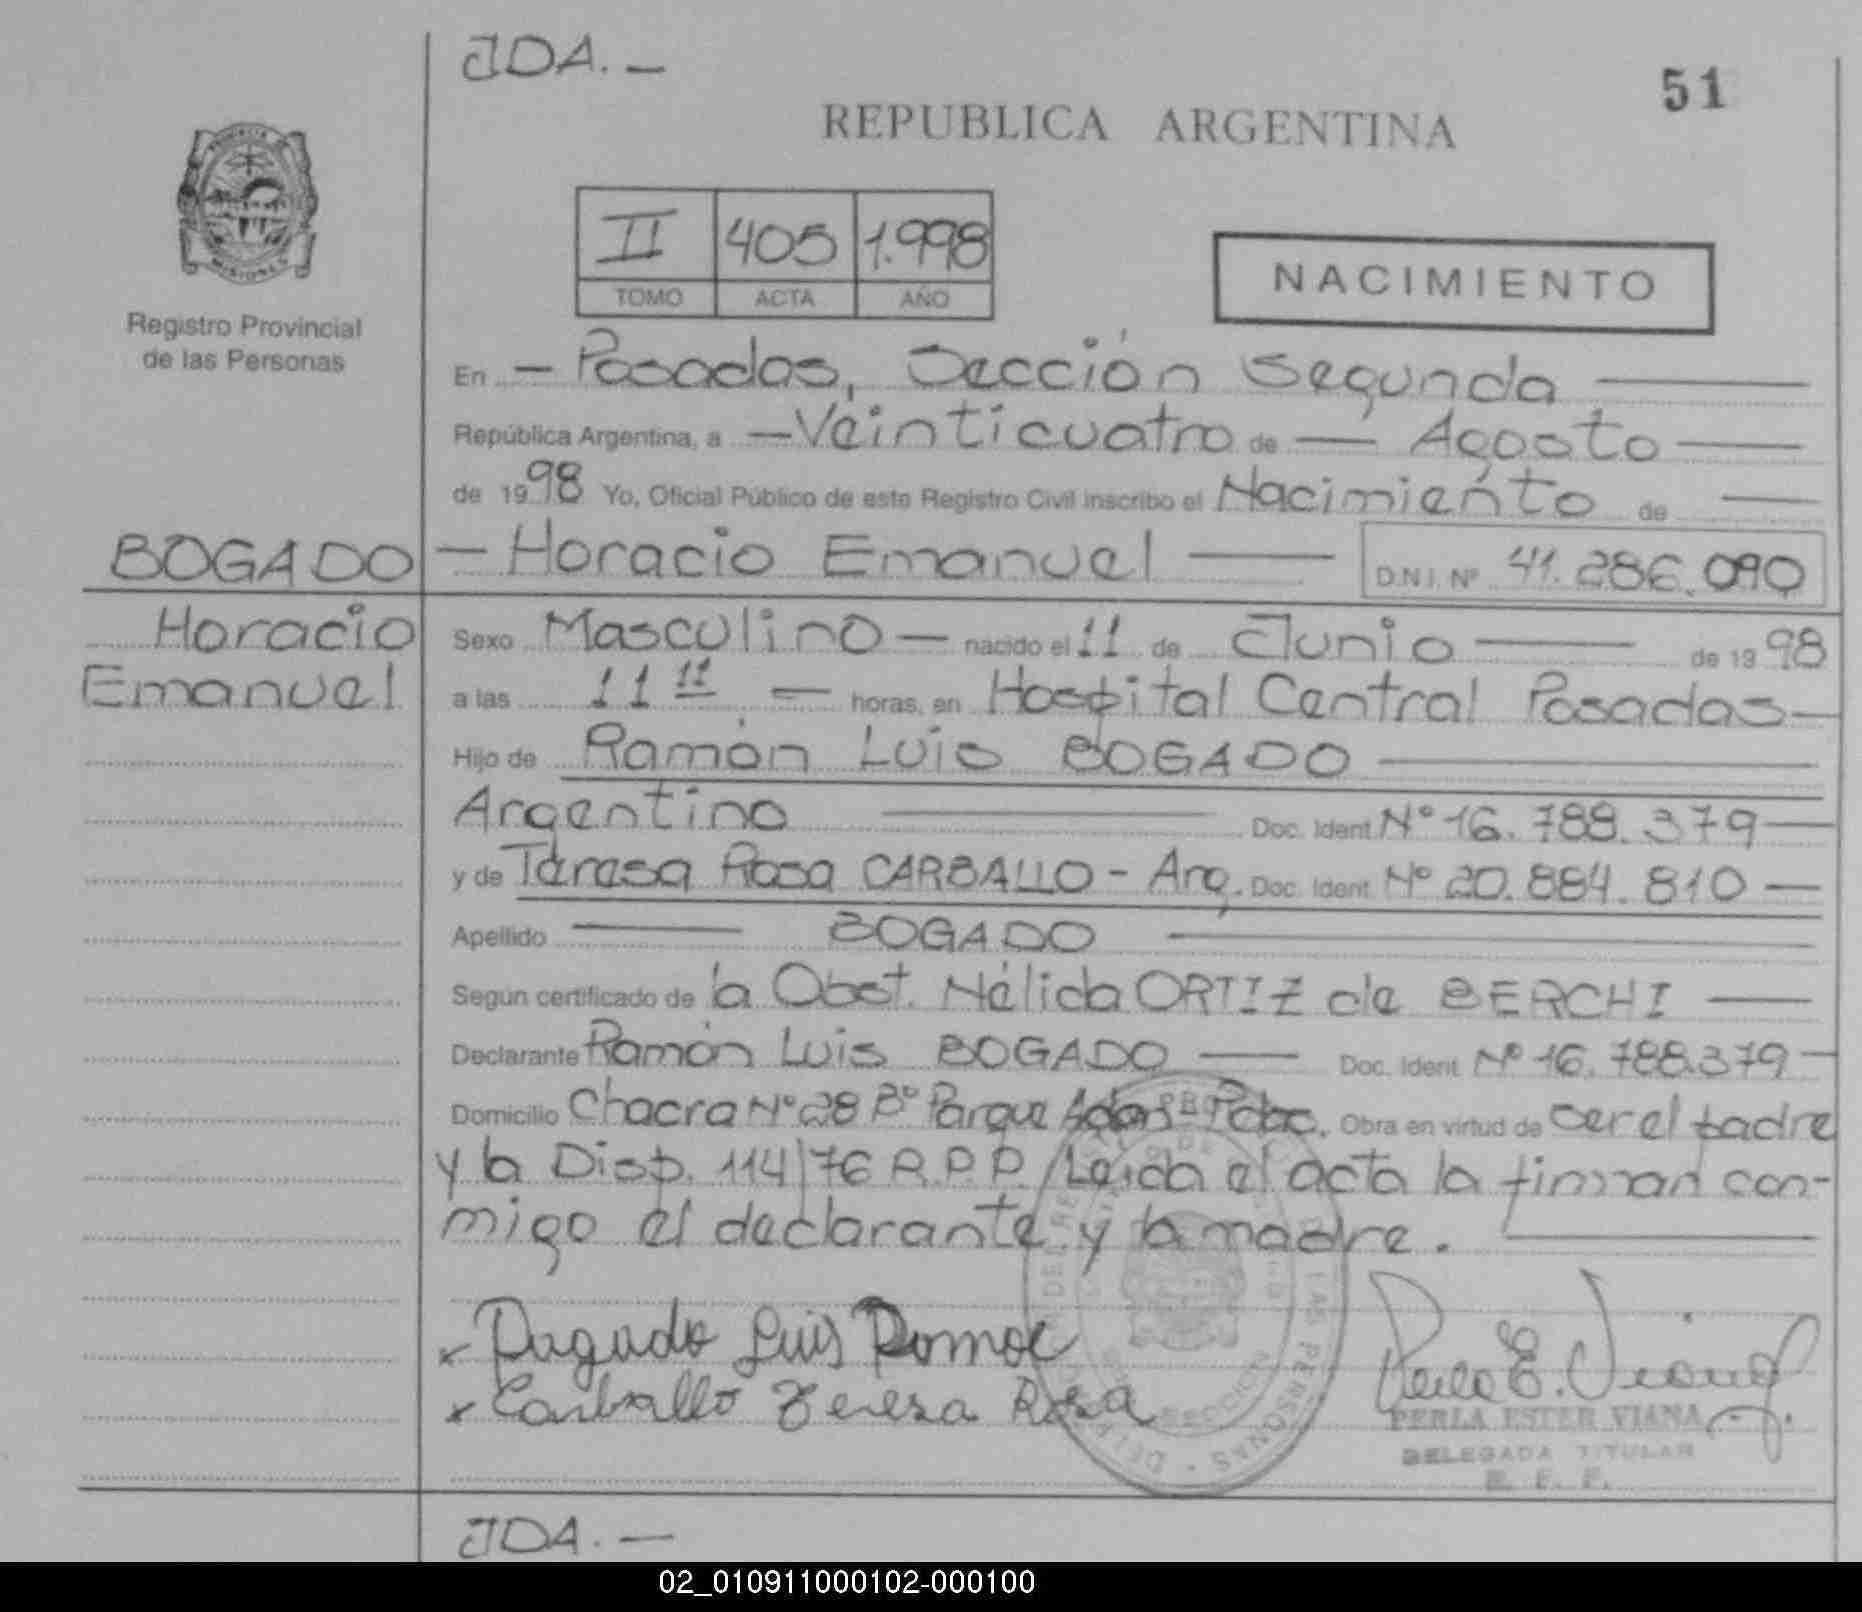 JDA. —
51
REPUBLICA ARGENTINA
II 405 1.998
TOMO ACTA AÑO
NACIMIENTO
MISIONES
Registro Provincial
de las Personas
En — Posadas, Sección Segunda —
República Argentina, a — Veinticuatro de — Agosto —
de 1998 Yo, Oficial Público de este Registro Civil inscribo el Nacimiento de —
BOGADO — Horacio Emanuel — D.N.I. Nº 41.286.090
Horacio Sexo Masculino — nacido el 11 de Junio — de 1998
Emanuel a las 11 11 — horas, en Hospital Central Posadas —
Hijo de Ramón Luis BOGADO —
Argentino — Doc. Ident. Nº 16.788.379 —
y de Teresa Rosa CARBALLO - Arg. Doc. Ident. Nº 20.884.810 —
Apellido — BOGADO —
Según certificado de la Obst. Nélida ORTIZ de BERCHI —
Declarante Ramón Luis BOGADO — Doc. Ident. Nº 16.788.379 —
Domicilio Chacra Nº 28 Bº Parque Adam - Pdas. Obra en virtud de ser el padre
y la Disp. 114/76 R.P.P. Leida el acta la firman con-
migo el declarante y la madre. —
x Luis
x Carballo Teresa Rosa
PERLA ESTER VIANA
DELEGADA TITULAR
JDA. —
02_010911000102-000100